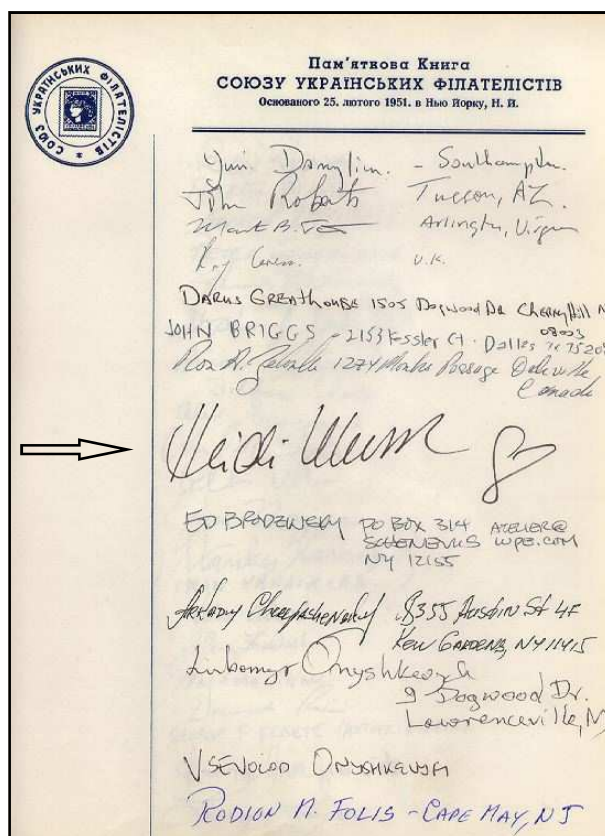 СОЮЗ УКРАЇНСЬКИХ ФІЛАТЕЛІСТІВ
Пам'яткова Книга
СОЮЗУ УКРАЇНСЬКИХ ФІЛАТЕЛІСТІВ
Основаного 25. лютого 1951. в Нью Йорку, Н. Й.
Yuri Danyliw. – Southampton.
John Roberts Tucson, AZ.
Mark B. Arlington,
Roy U.K.
DARUS GREATHOUSE 1505 Dogwood DR Cherry Hill N
08003
JOHN BRIGGS - 2153 Kessler Ct. Dallas TX 7520
Ron 1274 Monks Passage Oakville
Canada
Heidi
ED BRODZINSKY PO BOX 314 ATELIER@
SCHENEVUS WPE.COM
NY 12155
Arkady 8355 Austin St 4F
Kew Gardens, NY 11415
Lubomyr Onyshkevych
9 Dogwood Dr.
Lawrenceville, N
VSEVOLOD ONYSHKEVYCH
RODION M. FOLIS - CAPE MAY, NJ